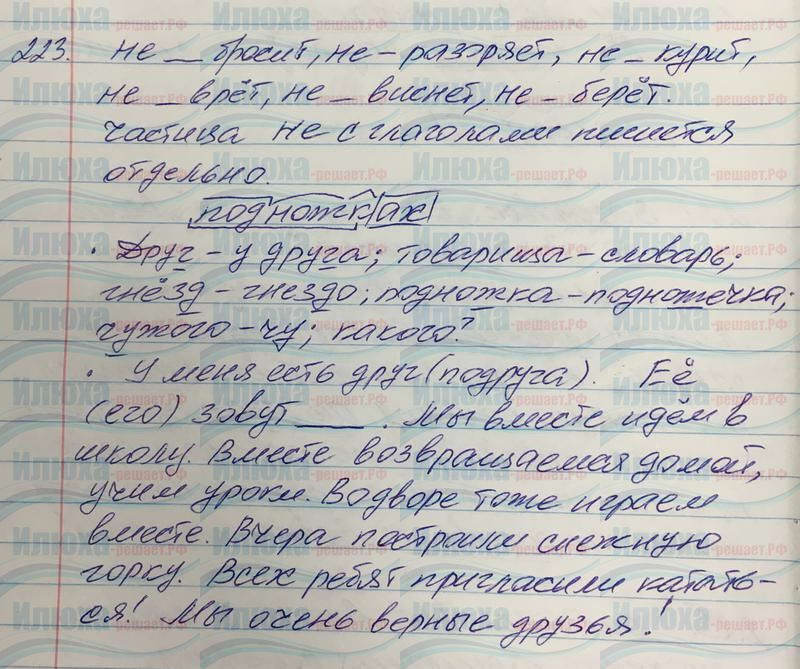 223. не _ бросит, не - разоряет, не _ курит,
не _ врёт, не _ виснет, не _ берёт.
Частица не с глаголами пишется
отдельно.
подножках
· Друг - у друга; товарища - словарь;
гнёзд - гнездо; подножка - подножечка;
чужого - чу; какого?
· У меня есть друг (подруга). Её
(его) зовут ____. Мы вместе идём в
школу. Вместе возвращаемая домой,
учим уроки. Во дворе тоже играем
вместе. Вчера построили снежную
горку. Всех ребят пригласили кататъ-
ся! Мы очень верные друзья.
Илюха-решает.РФ